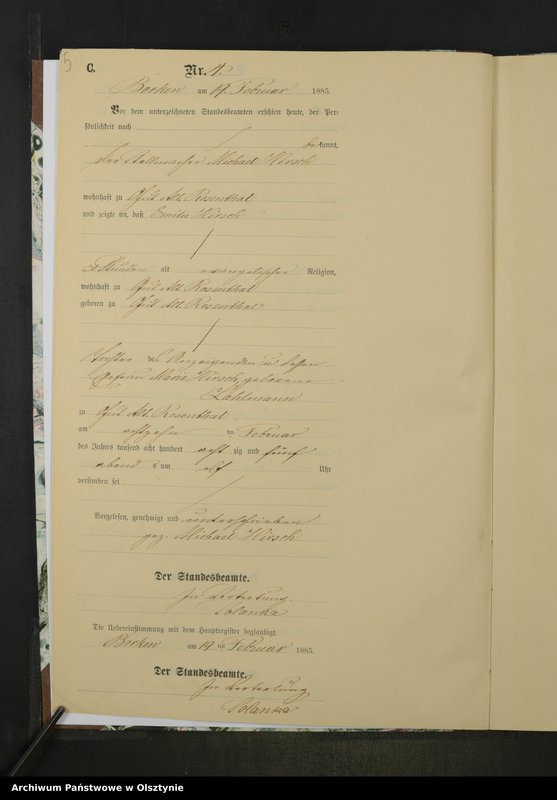 5
C.
Nr. 4.
Borken am 19. Februar 1885.
Vor dem unterzeichneten Standesbeamten erschien heute, der Per-
sönlichkeit nach
bekannt,
der Stellmacher Michael Hirsch
wohnhaft zu Gut Alt Rosenthal
und zeigte an, daß Emilie Hirsch
Stunden alt evangelischer Religion,
wohnhaft zu Gut Alt Rosenthal
geboren zu Gut Alt Rosenthal
Tochter des Anzeigenden u. dessen
Ehefrau Marie Hirsch, geborene
zu Gut Alt Rosenthal
am achtzehn ten Februar
des Jahres tausend acht hundert acht zig und fünf
abend s um elf Uhr
verstorben sei
Vorgelesen, genehmigt und unterschrieben
gez. Michael Hirsch
Der Standesbeamte.
In Vertretung.
Solanka
Die Uebereinstimmung mit dem Hauptregister beglaubigt.
Borken am 19 ten Februar 1885.
Der Standesbeamte.
In Vertretung
Solanka
Archiwum Państwowe w Olsztynie